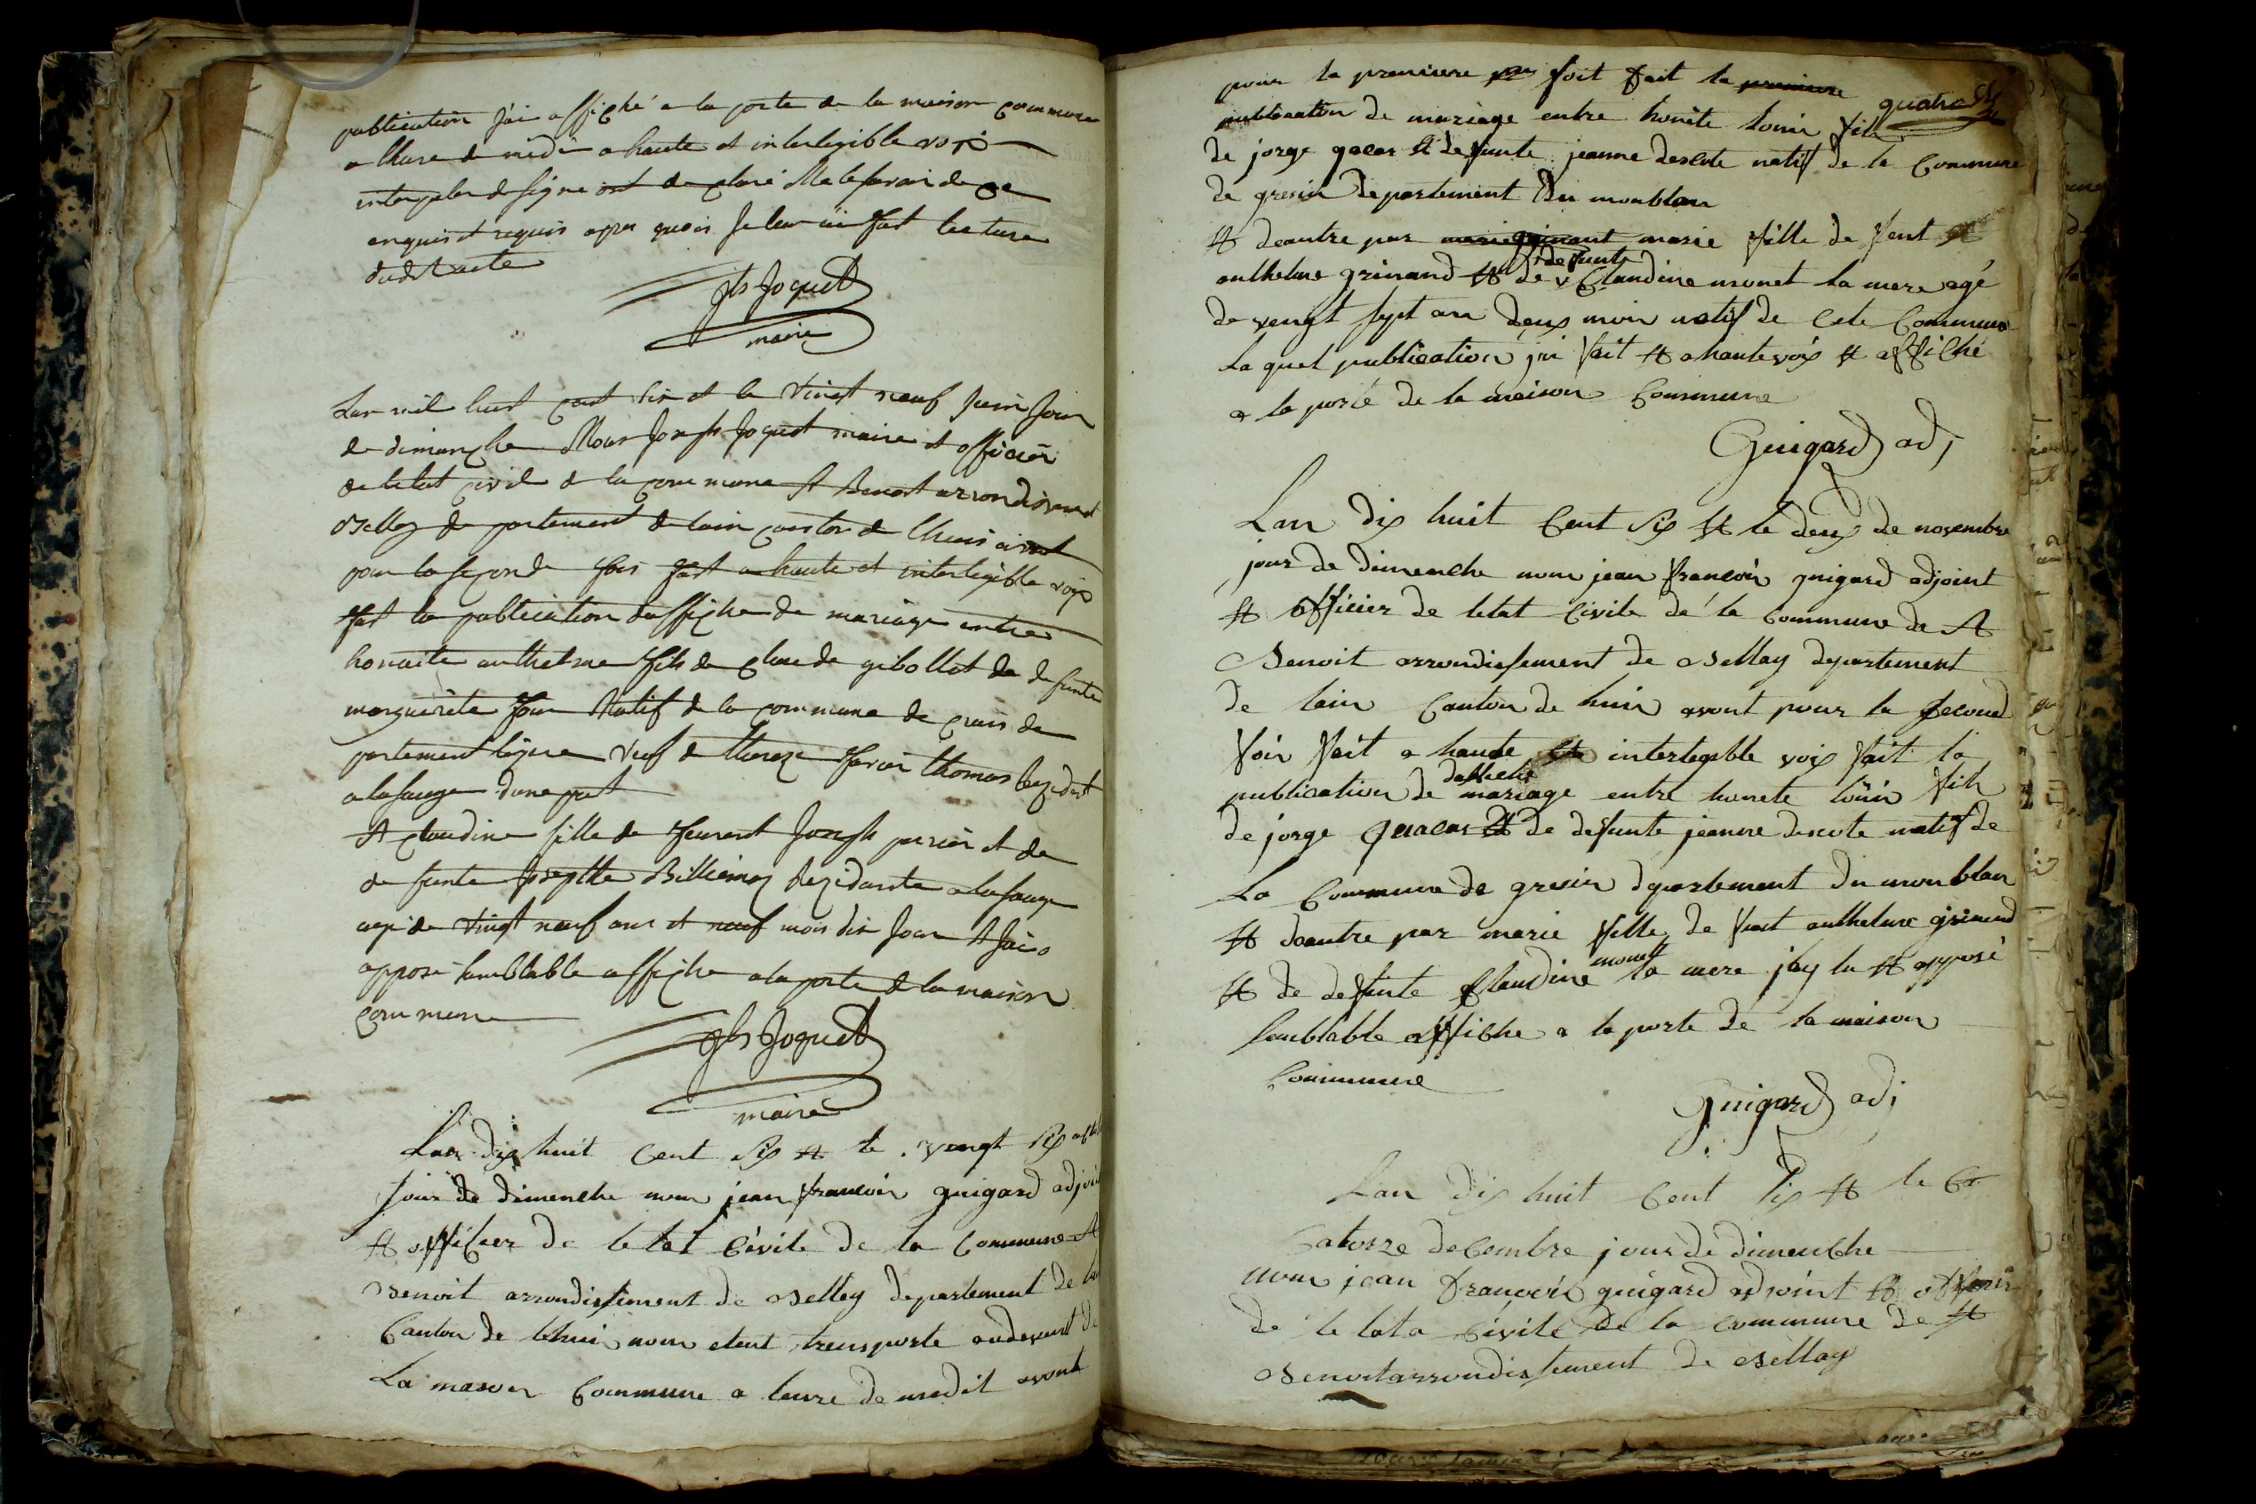 publication J'ai affiché a la porte de la maison commune
a lhure de midi a haute et interlegible voix
interpeler de signe ont de claré ne le savoir de ce
enquis et requis apres quoi Je leur ai fait lecture
dudit acte
Jh Joquet
maire
Lan mil huit cent six et le vingt neuf Juin Jour
de dimanche Nous Joseph Joquet maire et officier
de letat civil de la commune St Benoit arrondissement
Belley de partement de lain canton de lhuis avont
pour la seconde fois fait a haute et interlegible voix
fait la publication daffiche de mariage entre
honnaite anthelme fils de claude gibollet de defunte
marguerite Natif de la commune de de
partement ligere veuf de thereze thomas rezidant
a lasauge dune part
et claudine fille de feu Joseph perier et de
de funte Josephte Billiemaz rezidante a lasauge
agé de vingt neuf ans et neuf mois dix Jour et Jai
apposé semblable affiche a la porte de la maison
commune
Jh Joquet
maire
Lan dix huit cent six et le vengt six
Jour de dimenche nous jean francois guigard adjoi
et officier de letat Civile de la Commune St
Benoit arrondissement de Belley departement de lai
Canton de lhui nous etent transporte audevent de
La maison Commune a leure de medit avont
pour la premiere foit fait la premiere
quatre
publication de mariage entre honete louis fils
de jorge et defunte jeanne descote natif de la Commune
de gresin departement du monblan
et deautre par marie grimant marie fille de feut
defunte
anthelme grimand et de Claudine monet la mere agé
de vengt sept an deux mois natif de cete Commune
La quel publication jai fait et a haute voix et affiché
a la porte de la maison Commune
Guigard adj
Lan dix huit Cent six et le deux de novembre
jour de dimenche nous jean francois guigard adjoint
et officier de letat Civile de la Commune de St
Benoit arrondissement de Bellay departement
de lain Canton de huis avont pour la second
fois fait a haute interlegible voix fait la
daffiche
publication de mariage entre honete loüis fils
de jorge et de defunte jeanne descote natif de
La Commune de gresin departement du monblan
et deautre par marie fille de feut anthelme grimend
monet
et de defunte Claudine la mere jay lu et apposé
semblable affiche a la porte de la maison
Commune
Guigard adj
Lan dix huit Cent six et le Ca
Catorze decembre jour de dimenche
nous jean francois guigard adjoint et
de letata civile de la commune de St
Benoit arrondissement de Bellay